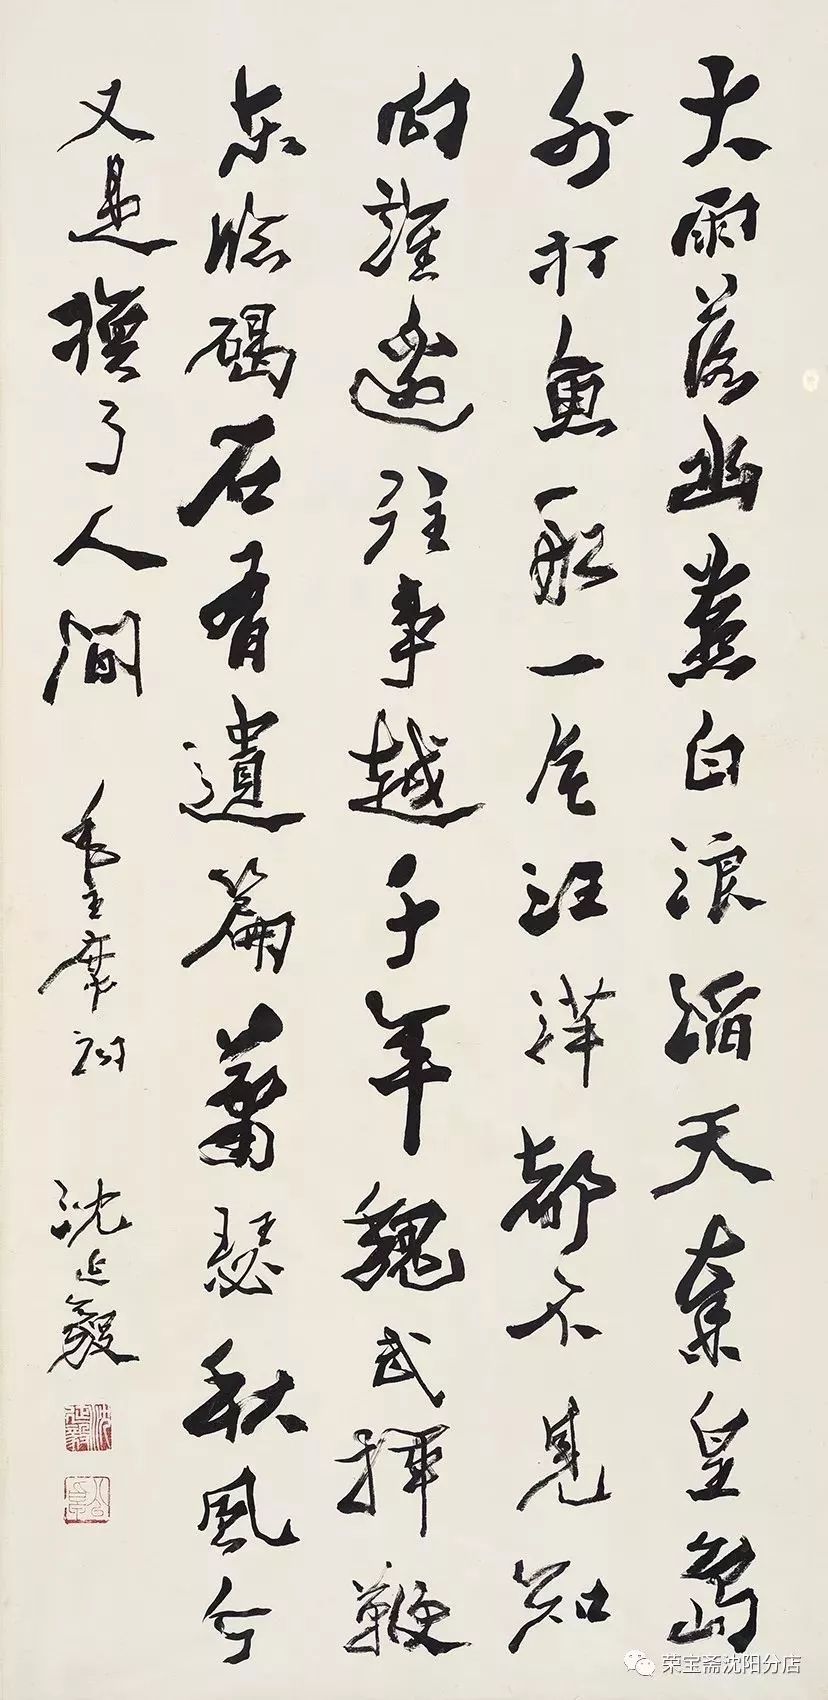 大雨落幽燕白浪滔天秦皇島
外打魚船一片汪洋都不見知
向誰邊往事越千年魏武揮鞭
東臨碣石有遺篇蕭瑟秋風今
又是換了人間
毛主席詞
沈延毅
沈延毅
公卓
荣宝斋沈阳分店